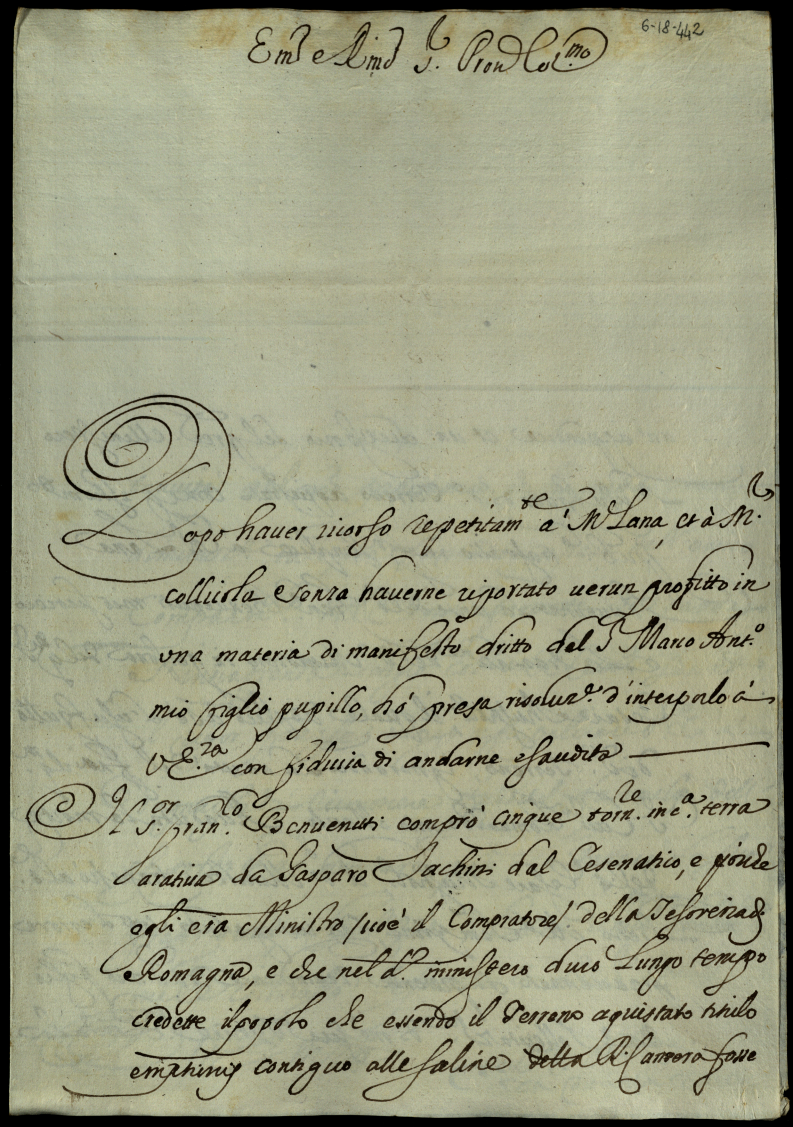 6-18-442
Em.o e Rmo S.r Pron Col.mo
Dopo hauer ricorso repetitam.te à M.r Lana, et à M.r
Collicola e senza hauerne riportato uerun profitto in
una materia di manifesto dritto del S.r Marco Ant.o
mio figlio pupillo, hò presa risoluz.e d'interporlo à
V E.za con fiducia di andarne esaudita
Il S.or Fran.co Benuenuti comprò cinque torn.re in c.a terra
aratiua da Gasparo Iachini dal Cesenatico, e perche
egli era Ministro /cioè il Compratore/ della Tesoreria di
Romagna, e che nel d.o ministero durò lungo tempo
credette il popolo che essendo il Terreno aquistato titulo
emptionis contiguo alle saline della R. Camera fosse